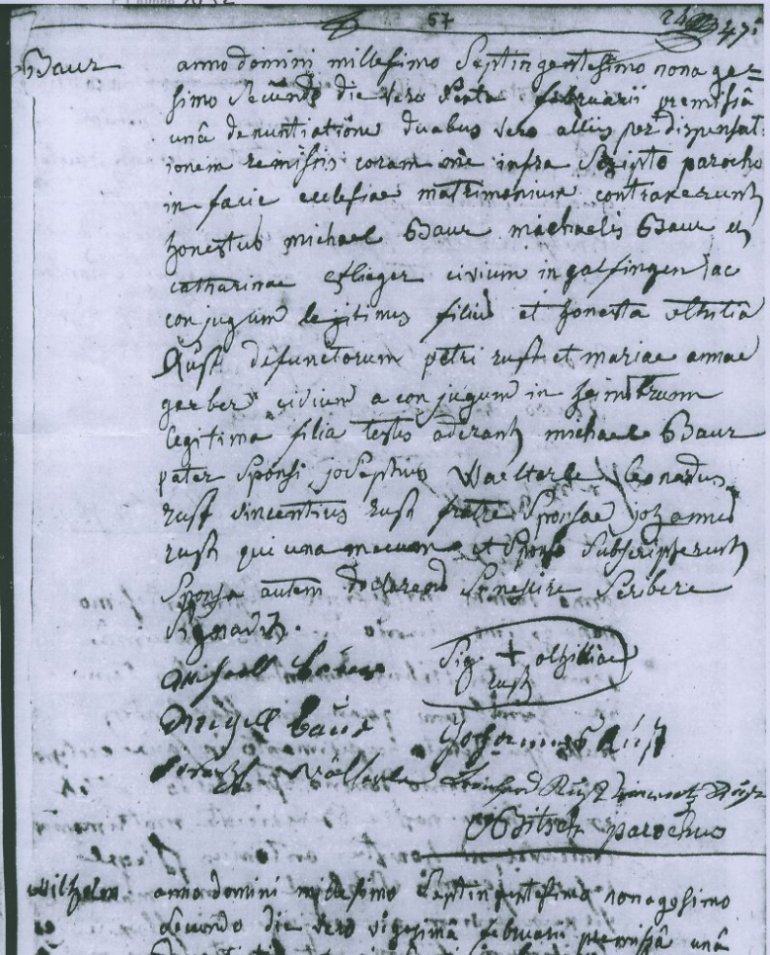 57
Baur
anno domini millesimo Septingentesimo nonage=
simo Secundo die vero Sexta februarii premissâ
unâ denuntiatione duabus vero aliis per dispensat
ionem remissis coram me infra Scripto parocho
in facie ecclesiae matrimonium contraxerunt
honestus michael Baur michaelis Baur et
catharinae pflieger civium in galfingen ac
conjugum legitimus filius et honesta othilia
Rust defunctorum petri rust et mariae annae
gerber civium ac conjugum in heimbrunn
legitima filia testes aderant michael Baur
pater Sponsi josephus Waelterle leonardus
rust vincentius rust fratre Sponsae johannes
rust qui una mecum et Sponso Subscripserunt
Sponsa autem declarend Se nescire Scribere
Signavit.
Michaell baur
Sig + othiliae
rust
Michell baur
Johannes Rust
Wälterle Leonhard Rust Vincentz Rust
parochus
Wilhelm anno domini millesimo Septingentesimo nonagesimo
secundo die vero vigesimâ februarii premissâ unâ